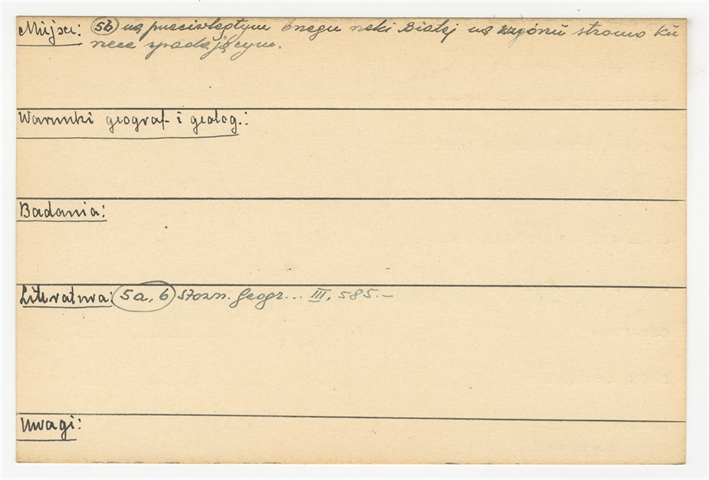 Miejsce: 5b na przeciwległym brzegu rzeki Białej na wzgórzu stromo ku
rzece spadającym.
Warunki geograf. i geolog.:
Badania:
Literatura: 5a, b Słown. Geogr... III, 585.-
Uwagi: